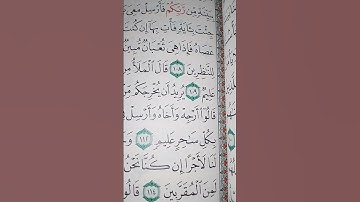 بِبَيِّنَةٍ مِّن رَّبِّكُمْ فَأَرْسِلْ مَعِيَ
جِئْتَ بِـَٔايَةٍ فَأْتِ بِهَآ إِن كُنتَ
عَصَاهُ فَإِذَا هِيَ ثُعْبَانٌ مُّبِينٌ
لِلنَّٰظِرِينَ ١٠٨ قَالَ ٱلْمَلَأُ مِن
عَلِيمٌ ١٠٩ يُرِيدُ أَن يُخْرِجَكُم مِّنْ
قَالُوٓا۟ أَرْجِهْ وَأَخَاهُ وَأَرْسِلْ فِي
بِكُلِّ سَٰحِرٍ عَلِيمٍ ١١٢ وَجَ
لَنَا لَأَجْرًا إِن كُنَّا نَحْنُ
لَمِنَ ٱلْمُقَرَّبِينَ ١١٤ قَالُوا